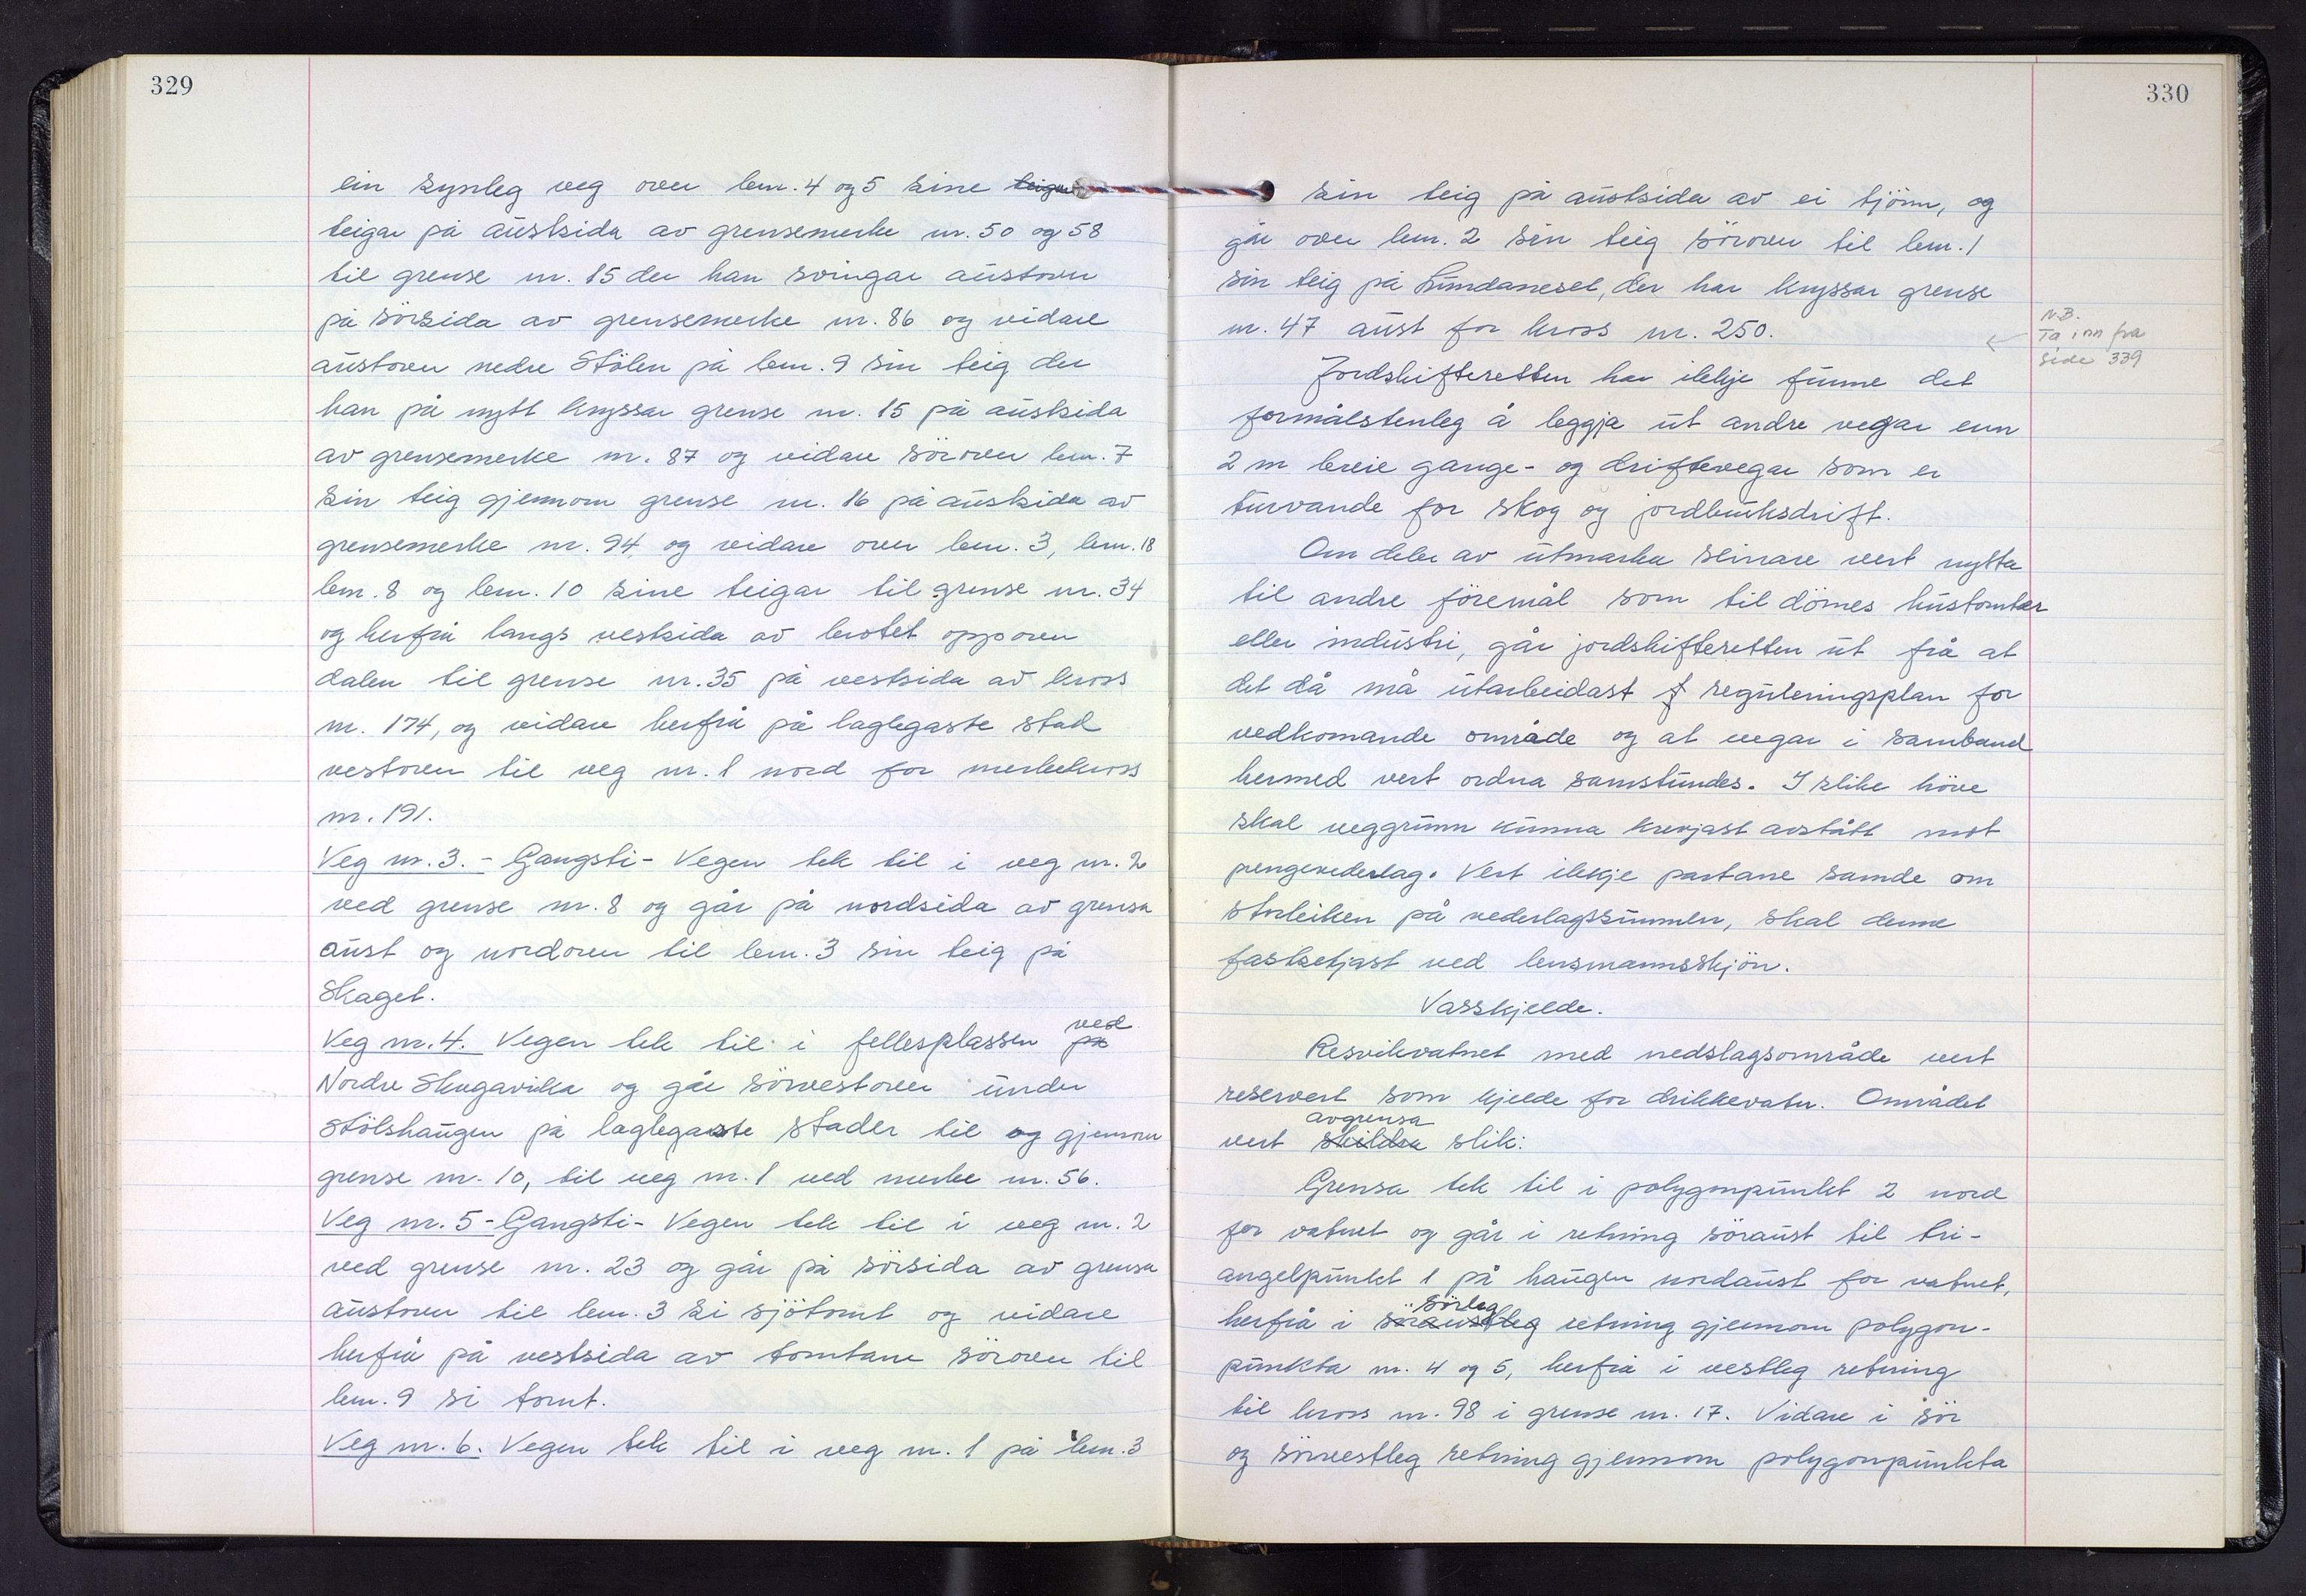 329
ein synleg veg over lem. 4 og 5 sine teigar
teigar på austsida av grensemerke nr. 50 og 58
til grense nr. 15 der han svingar austover
på sörsida av grensemerke nr. 86 og vidare
austover nedre Stölen på lem. 9 sin teig der
han på nytt kryssar grense nr. 15 på austsida
av grensemerke nr. 87 og vidare sörover lem. 7
sin teig gjennom grense nr. 16 på austsida av
grensemerke nr. 94, og vidare over lem. 3, lem. 18
lem. 8 og lem. 10 sine teigar til grense nr. 34
og herfrå langs vestsida av brotet oppover
dalen til grense nr. 35 på vestsida av kross
nr. 174, og vidare herfrå på laglegaste stad
vestover til veg nr. 1 nord for merkekross
nr. 191.
Veg nr. 3. - Gangsti - Vegen tek til i veg nr. 2
ved grense nr. 8 og går på nordsida av grensa
aust og nordover til lem. 3 sin teig på
Skaget.
ved
Veg nr. 4. Vegen tek til i fellesplassen på
Nordre Skogavika og går sörvestover under
Stölshaugen på laglegaste stader til og gjennom
grense nr. 10, til veg nr. 1 ved merke nr. 56.
Veg nr. 5 - Gangsti - Vegen tek til i veg nr. 2
ved grense nr. 23 og går på sörsida av grensa
austover til lem. 3 si sjötomt og vidare
herfrå på vestsida av tomtane sörover til
lem. 9 si tomt.
Veg nr. 6. Vegen tek til i veg nr. 1 på lem. 3
330
sin teig på austsida av ei tjönn, og
går over lem. 2 sin teig söröver til lem. 1
sin teig på Lundaneset, der han kryssar grense
nr. 47 aust for kross nr. 250.
N.B.
Ta inn fra
side 339
Jordskifteretten har ikkje funne det
formålstenleg å leggja ut andre vegar enn
2 m breie gange- og driftevegar som er
turvande for skog og jordbruksdrift.
Om deler av utmarka seinare vert nytta
til andre föremål som til dömes hustomter
eller industri, går jordskifteretten ut frå at
det då må utarbeidast f reguleringsplan for
vedkomande område og at vegar i samband
hermed vert ordna samstundes. I slike höve
skal veggrunn kunna krevjast avstått mot
pengevederlag. Vert ikkje partane samde om
storleiken på vederlagssummen, skal denne
fastsetjast ved lensmannsskjön.
Vasskjelde.
Resvikvatnet med nedslagsområde vert
reservert som kjelde for drikkevatn. Området
avgrensa
vert skildra slik:
Grensa tek til i polygonpunkt 2 nord
for vatnet og går i retning söraust til tri-
angelpunkt 1 på haugen nordaust for vatnet,
sörleg
herfrå i söraustleg retning gjennom polygon-
punkta nr. 4 og 5, herfrå i vestleg retning
til kross nr. 98 i grense nr. 17. Vidare i sör
og sörvestleg retning gjennom polygonpunkta